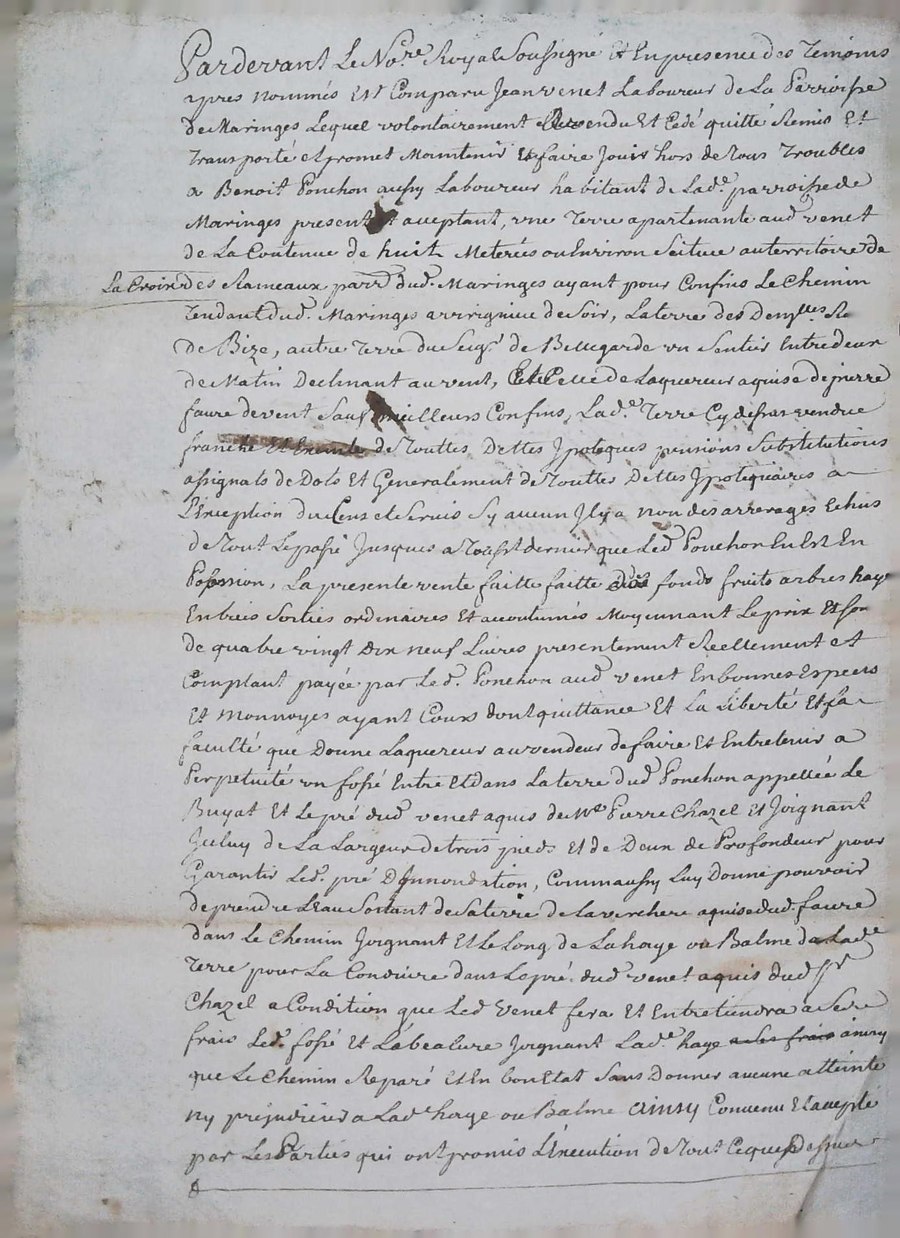 Pardevant Le No.re Royal Soussigné Et En presence des Temoins
apres nommés Est Comparu Jean venet Laboureur de La Parroisse
de Maringes Lequel volontairement a vendu Et Cedé quitté Remis Et
Transporté et promet Maintenir Et faire Jouir hors de tous Troubles
a Benoit Ponchon aussy Laboureur habitant de Lad.e parroisse de
Maringes present Et aceptant, une Terre apartenante aud. venet
de La Contenue de huit Meterées ou Environ Scituee au territoire de
La Croix des Rameaux parr. dud. Maringes ayant pour Confins Le Chemin
Tendant dud. Maringes a virigneu de Soir, La terre des
de Bize, autre Terre du Seig.r de Bellegarde un Sentier Entredeux
de Matin Declinant au vent, Et Celle de Laquereur aquise de pierre
faure de vent Sauf meilleurs Confins, Lad.e Terre Cy dessus vendue
franche Et Exempte de Touttes Dettes Ipoteques pensions Substitutions
assignats de Dots Et Generalement de Touttes Dettes Ipotequaires a
L'Exception du Cens et Servis Sy aucun Il y a non des arrerages Echus
de Tout Le passé Jusques a dernier que Led. Ponchon En Est En
Possession, La presente vente faitte faitte fonds fruits arbres haye
Entrées Sorties ordinaires Et accoutumés Moyennant Le prix Et So
de quatre vingt Dix neuf Livres presentement Reellement et
Comptant payée par Led. Ponchon aud. venet En bonnes Especes
Et Monnoyes ayant Cours dont quittance Et La Liberté Et fa
faculté que Donne Laquereur au vendeur de faire Et Entretenir a
Perpetuité un fossé Entre Et dans La terre dud. Ponchon appellée Le
Buyat Et Le pré dud. venet aquis de M.e Pierre Chazel Et Joignant
Iceluy de La Largeur de trois pieds Et de Deux de Profondeur pour
Garantir Led. pré D'Innondation, Comm aussy Luy Donne pouvoir
de prendre L'Eau Sortant de Sa terre de La verchere aquise dud. faure
dans Le Chemin Joignant Et Le Long de La haye ou Balme de Lad.e
Terre pour La Conduire dans Le pré dud. venet aquis dud. S.r
Chazel a Condition que Led. Venet fera Et Entretiendra a Ses
frais Led. fossé Et Labealure Joignant Lad.e haye a Ses frais ainsy
que Le Chemin Reparé Et En bon Etat Sans Donner aucune atteinte
ny prejudicier a Lad.e haye ou Balme ainsy Convenu Et accepté
par Les Parties qui ont promis L'Execution de Tout Ceque dessus